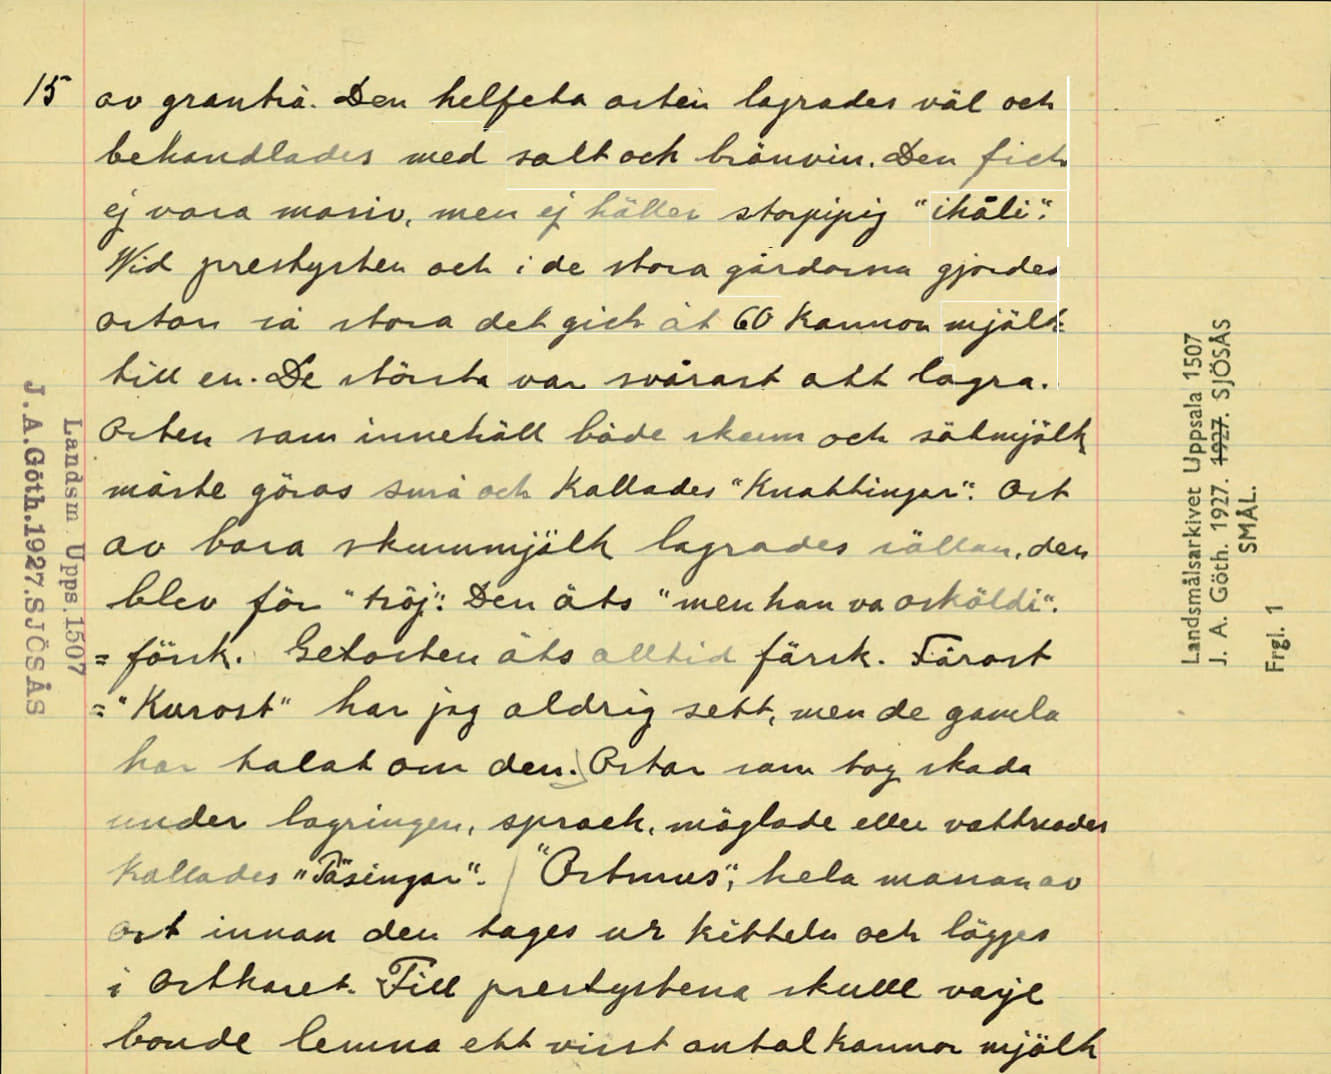 15 av granträ. Den helfeta osten lagrades väl och
behandlades med salt och bränvin. Den fick
ej vara massiv, men ej häller storpipig "ihåli".
Wid prestysten och i de stora gårdarna gjordes
ostar så stora det gick åt 60 kannor mjölk
till en. De största var svårast att lagra.
Osten som innehåll både skum och sötmjölk
måste göras små och kallades "Knattingar". Ost
av bara skummjölk lagrades sällan, den
blev för "tröj". Den äts "men han va osköldi".
= färsk. Getosten äts alltid färsk. Fårost
= "Kurost" har jag aldrig sett, men de gamla
har talat om den. Ostar som tog skada
under lagringen, sprack, möglade eller vattnades
kallades "Päsingar". "Ostmus", hela massan av
ost innan den tages ur kitteln och lägges
i ostkaret. Till prestystena skulle varje
bonde lemna ett visst antal kannor mjölk
Landsm. Upps. 1507
J.A.Göth.1927.SJÖSÅS
Landsmålsarkivet Uppsala 1507
J. A. Göth. 1927. 1927. SJÖSÅS
SMÅL.
Frgl. 1